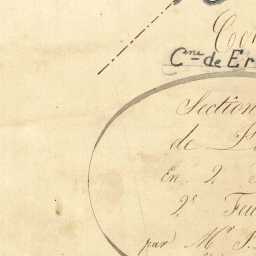 Cne de Er
Section
de
En 2
2e Feu
par Mr